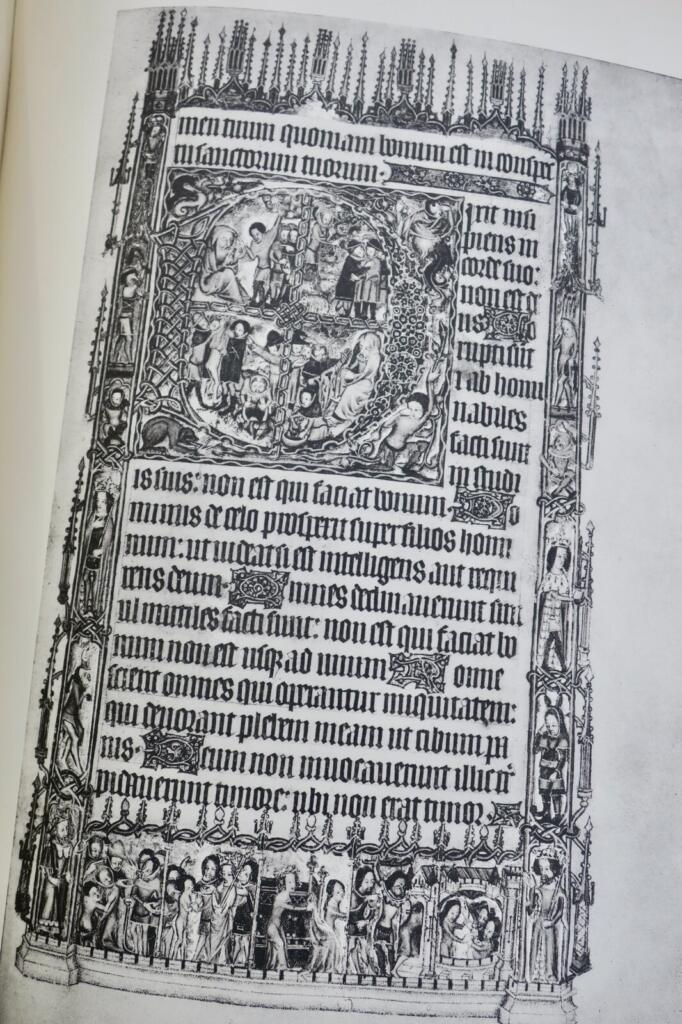 men tuum quoniam bonum est in conspec
tu sanctorum tuorum.
Dixit insi
piens in
corde suo:
non est de
us Co
rupti sut
t ab homi
nabiles
facti sunt
in studi
is suis: non est qui faciat bonum. Do
minus de celo prosperit super filios homi
num: ut uideat si est intelligens aut requi
rens deum. Omnes declinauerunt sim
ul inutiles facti sunt: non est qui faciat bo
num non est usq ad unum Nonne
scient omnes qui operantur iniquitatem:
qui deuorant plebem meam ut cibum pa
nis. Deum non inuocauerunt illic t
pidauerunt timore: ubi non erat timor.